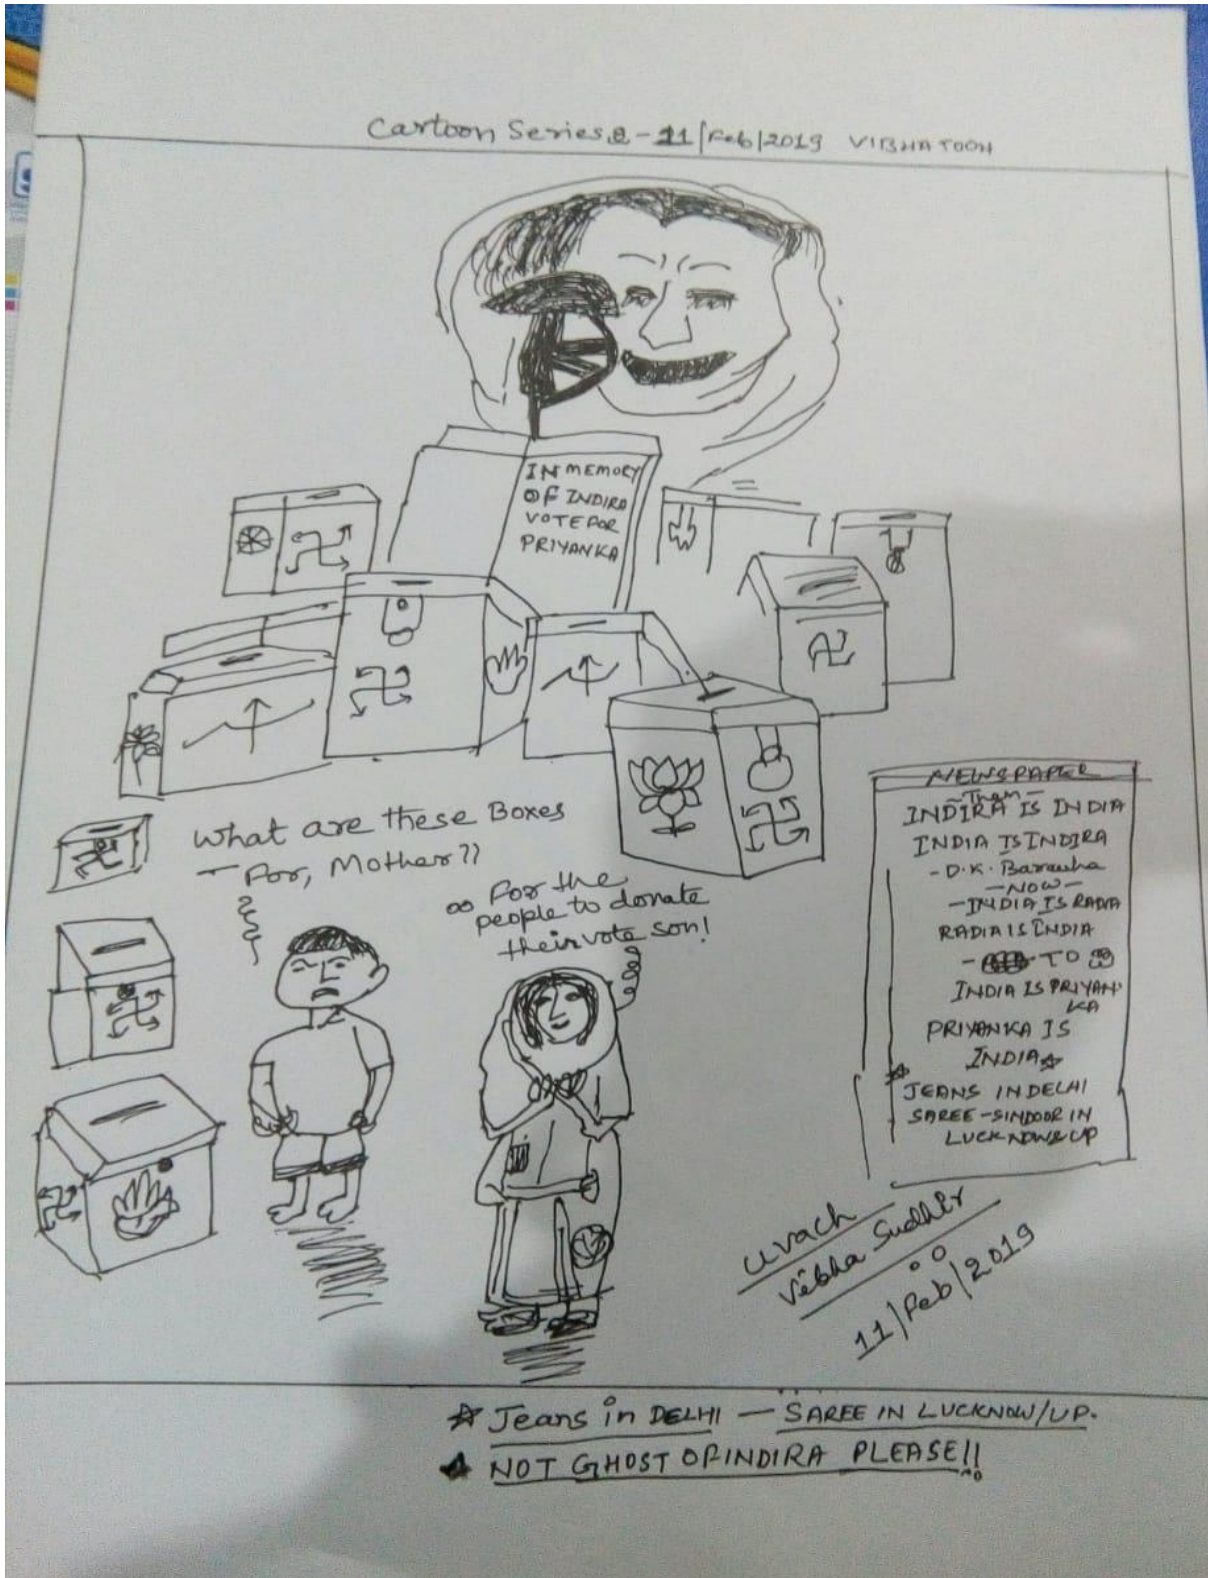 Cartoon Series 2 - 11/Feb/2019 VIBHATOON
IN MEMORY
OF INDIRA
VOTE FOR
PRIYANKA
What are these Boxes
- For, Mother??
For the
people to donate
their vote son!
NEWSPAPER
- Then -
INDIRA IS INDIA
INDIA IS INDIRA
- D.K. Barauha
- NOW -
- INDIA IS RADIA
RADIA IS INDIA
- TO
INDIA IS PRIYAN-
KA
PRIYANKA IS
INDIA☆
☆
JEANS IN DELHI
SAREE-SINDOOR IN
LUCKNOW&UP
uvach
Vibha Sudhir
11/Feb/2019
☆ Jeans in DELHI — SAREE IN LUCKNOW/UP.
★ NOT GHOST OF INDIRA PLEASE!!